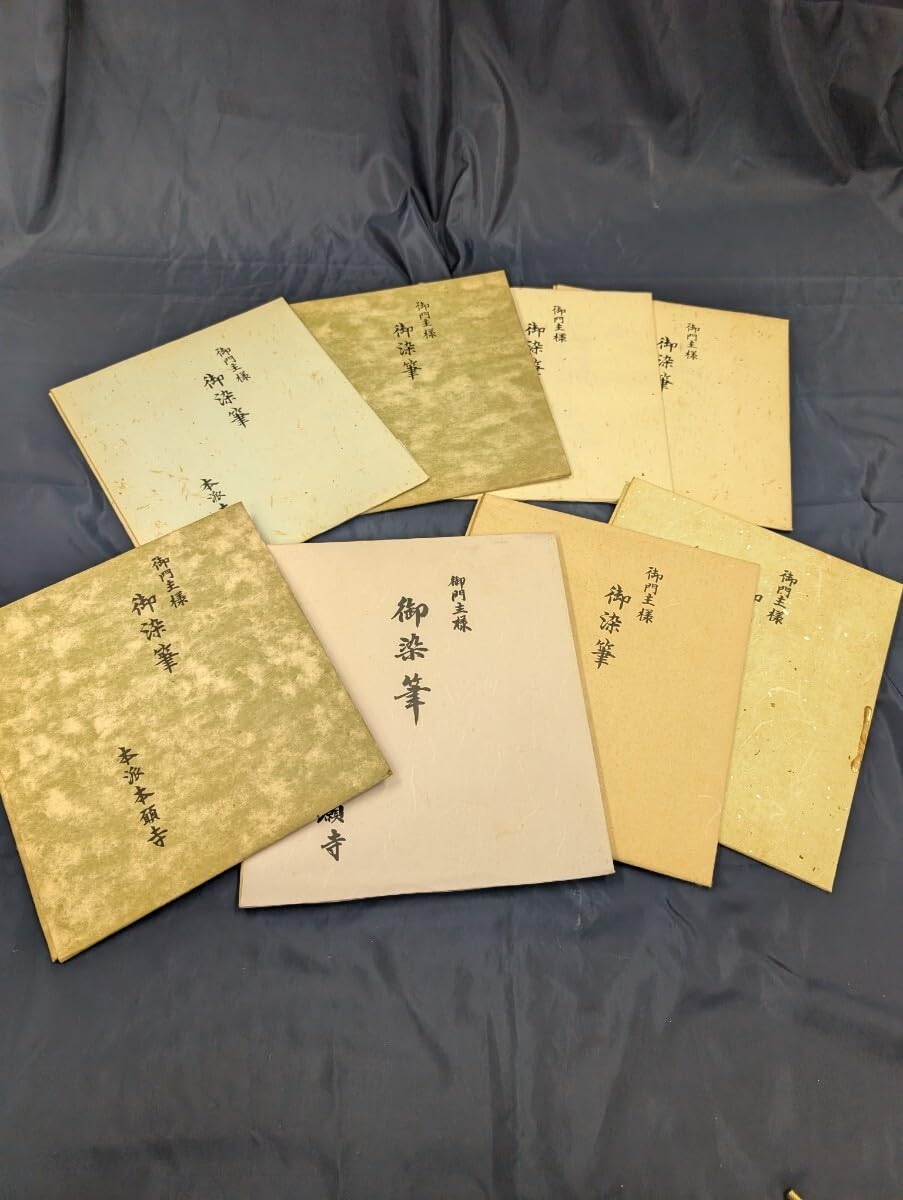 御門主様
御染筆
本派
御門主様
御染筆
御門主様
御染筆
御門主様
御染筆
御門主様
御染筆
本派本願寺
御門主様
御染筆
願寺
御門主様
御染筆
御門主様